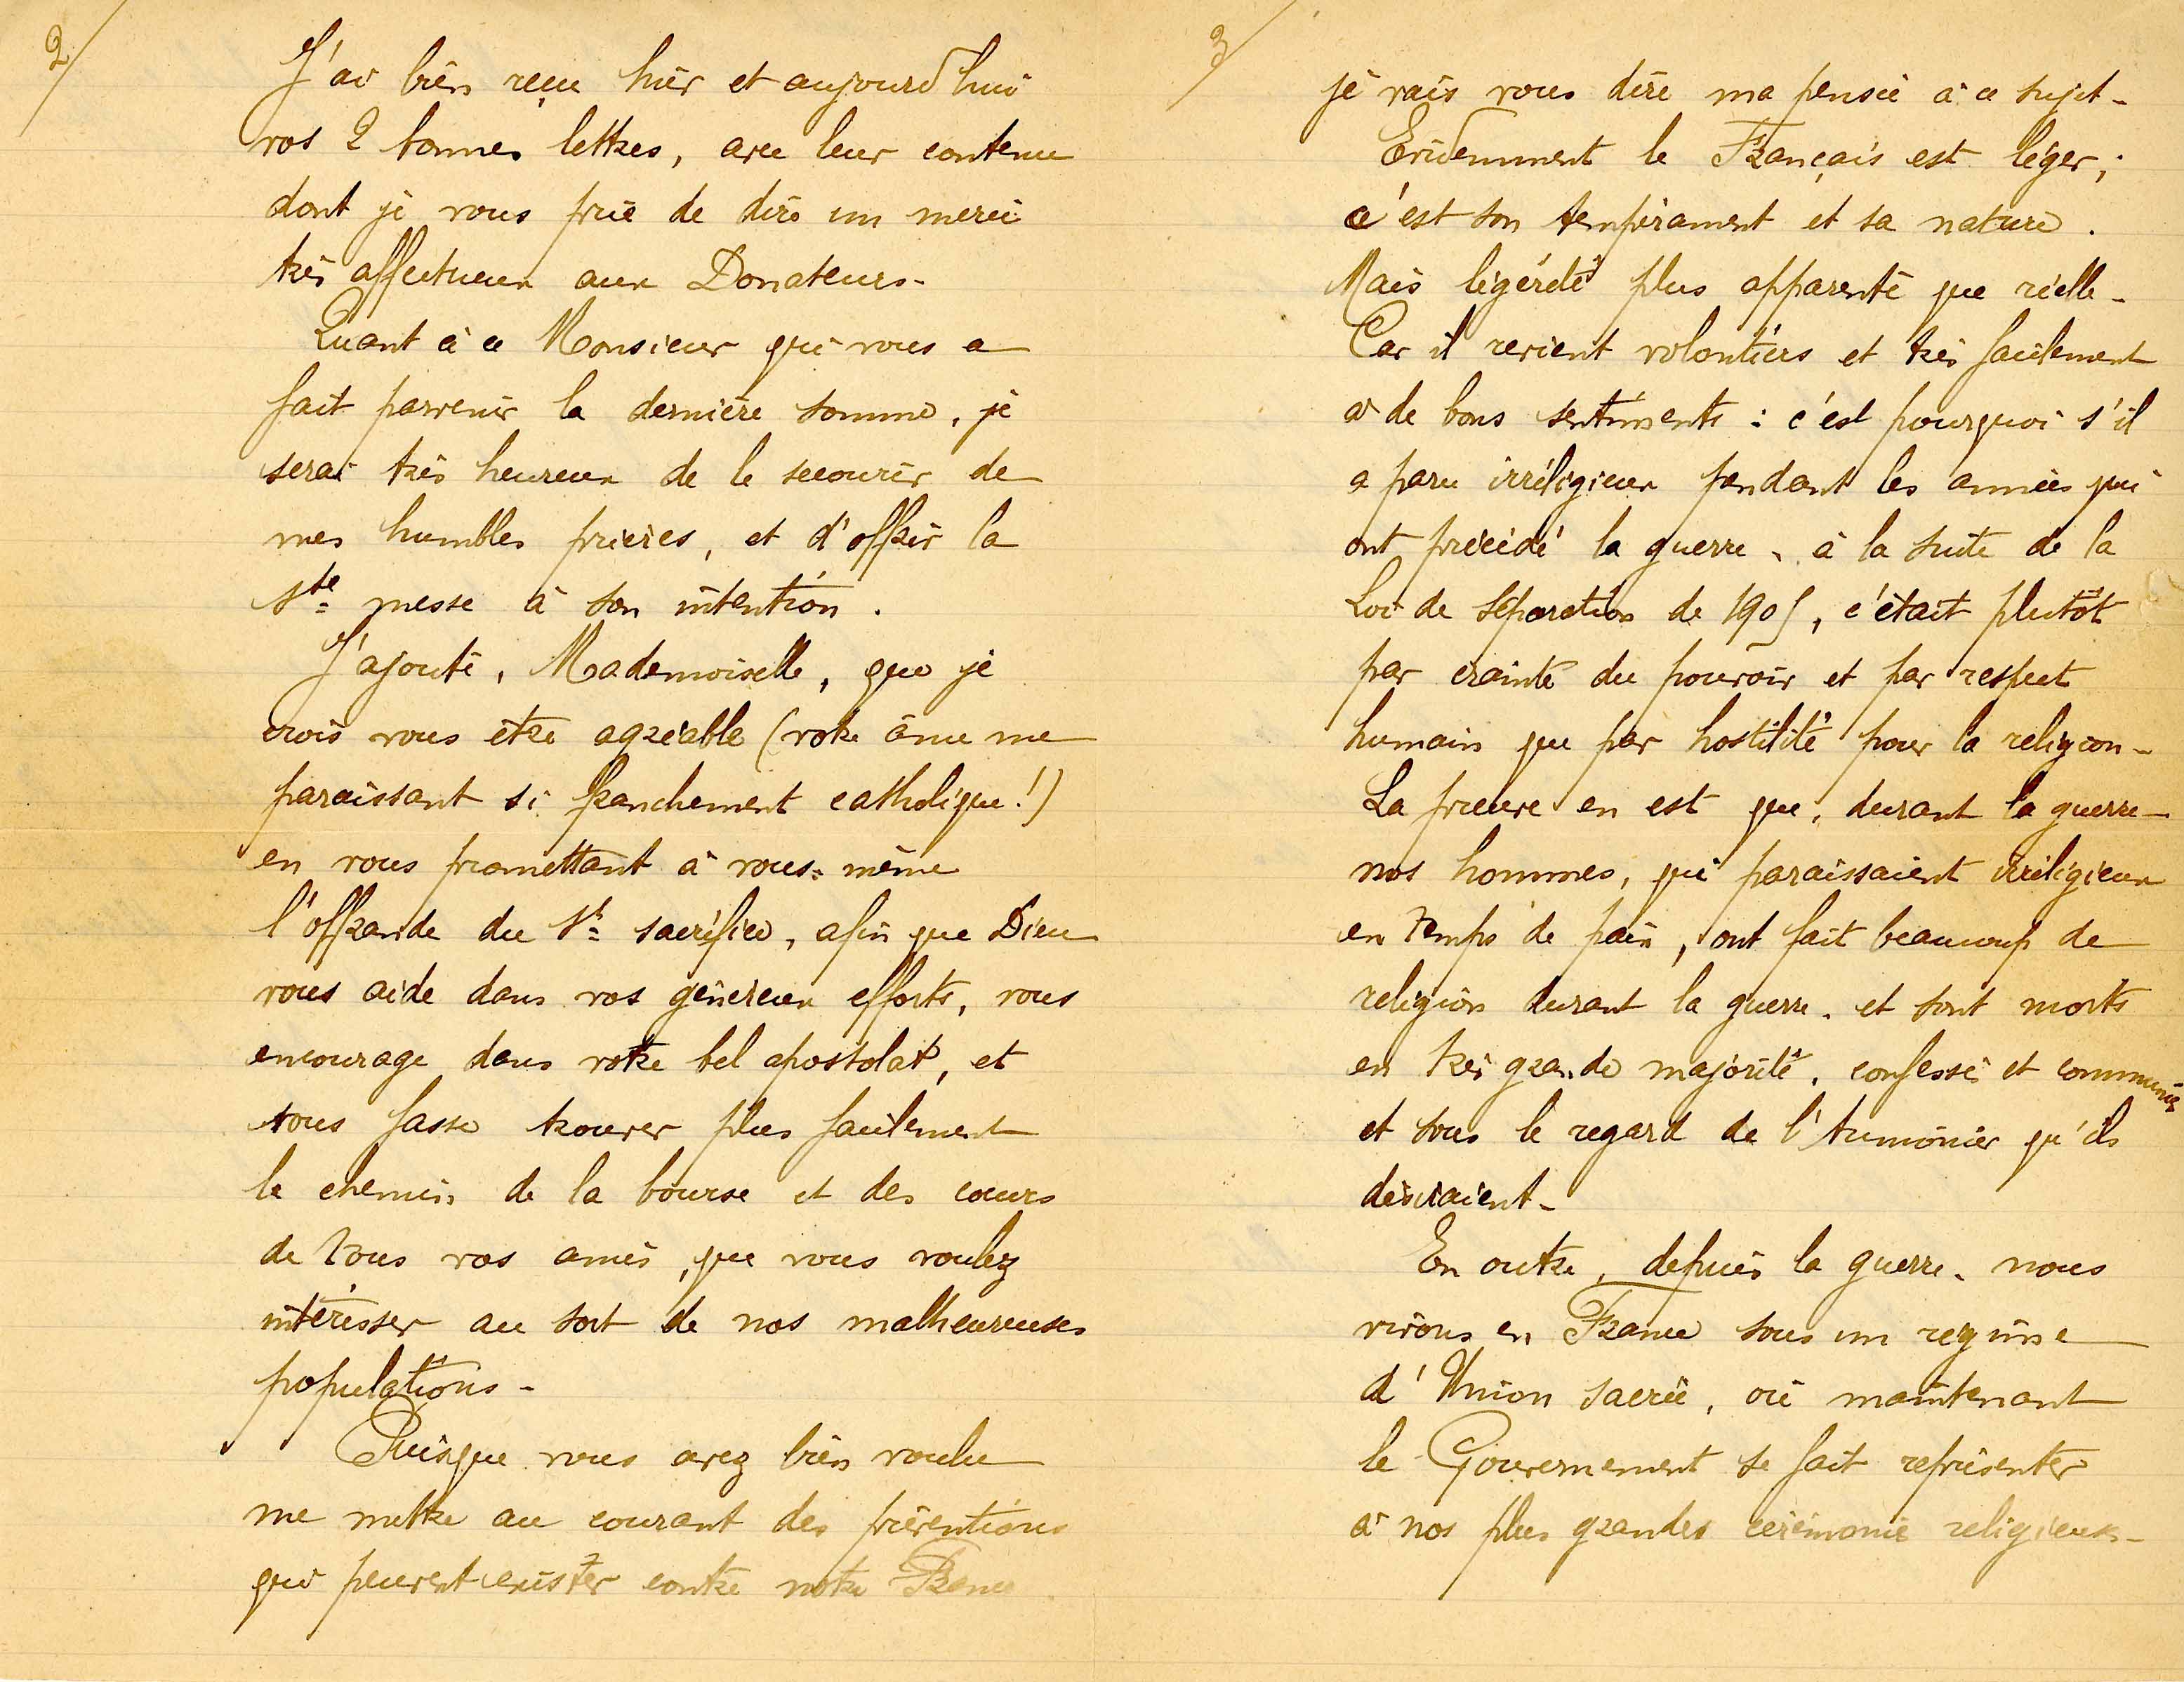 2/
J'ai bien reçu hier et aujourd'hui
vos 2 bonnes lettres, avec leur contenu
dont je vous prie de dire un merci
très affectueux aux Donateurs -
Quant à ce Monsieur qui vous a
fait parvenir la dernière somme, je
serai très heureux de le secourir de
mes humbles prières, et d'offrir la
Ste messe à son intention.
J'ajoute, Mademoiselle, que je
crois vous être agréable (votre âme me
paraissant si franchement catholique!)
en vous promettant à vous-même
l'offrande du St sacrifice, afin que Dieu
vous aide dans vos généreux efforts, vous
encourage dans votre bel apostolat, et
vous fasse trouver plus facilement
le chemin de la bourse et des cœurs
de tous vos amis, que vous voulez
intéresser au sort de nos malheureuses
populations -
Puisque vous avez bien voulu
me mettre au courant des préventions
qui peuvent exister contre notre France
3/
je vais vous dire ma pensée à ce sujet -
Evidemment le Français est léger,
c'est son tempérament et sa nature.
Mais légèreté plus apparente que réelle -
Car il revient volontiers et très facilement
à de bons sentiments : c'est pourquoi s'il
a paru irréligieux pendant les années qui
ont précédé la guerre, à la suite de la
Loi de Séparation de 1905, c'était plutôt
par crainte du pouvoir et par respect
humain que par hostilité pour la religion -
La preuve en est que, durant la guerre
nos hommes, qui paraissaient irréligieux
en temps de paix, ont fait beaucoup de
religion durant la guerre, et sont morts
en très grande majorité, confessés et communiés
et sous le regard de l'Aumônier qu'ils
désiraient -
En outre, depuis la guerre, nous
vivons en France sous un régime
d'Union sacrée, où maintenant
le Gouvernement se fait représenter
à nos plus grandes cérémonies religieuses -